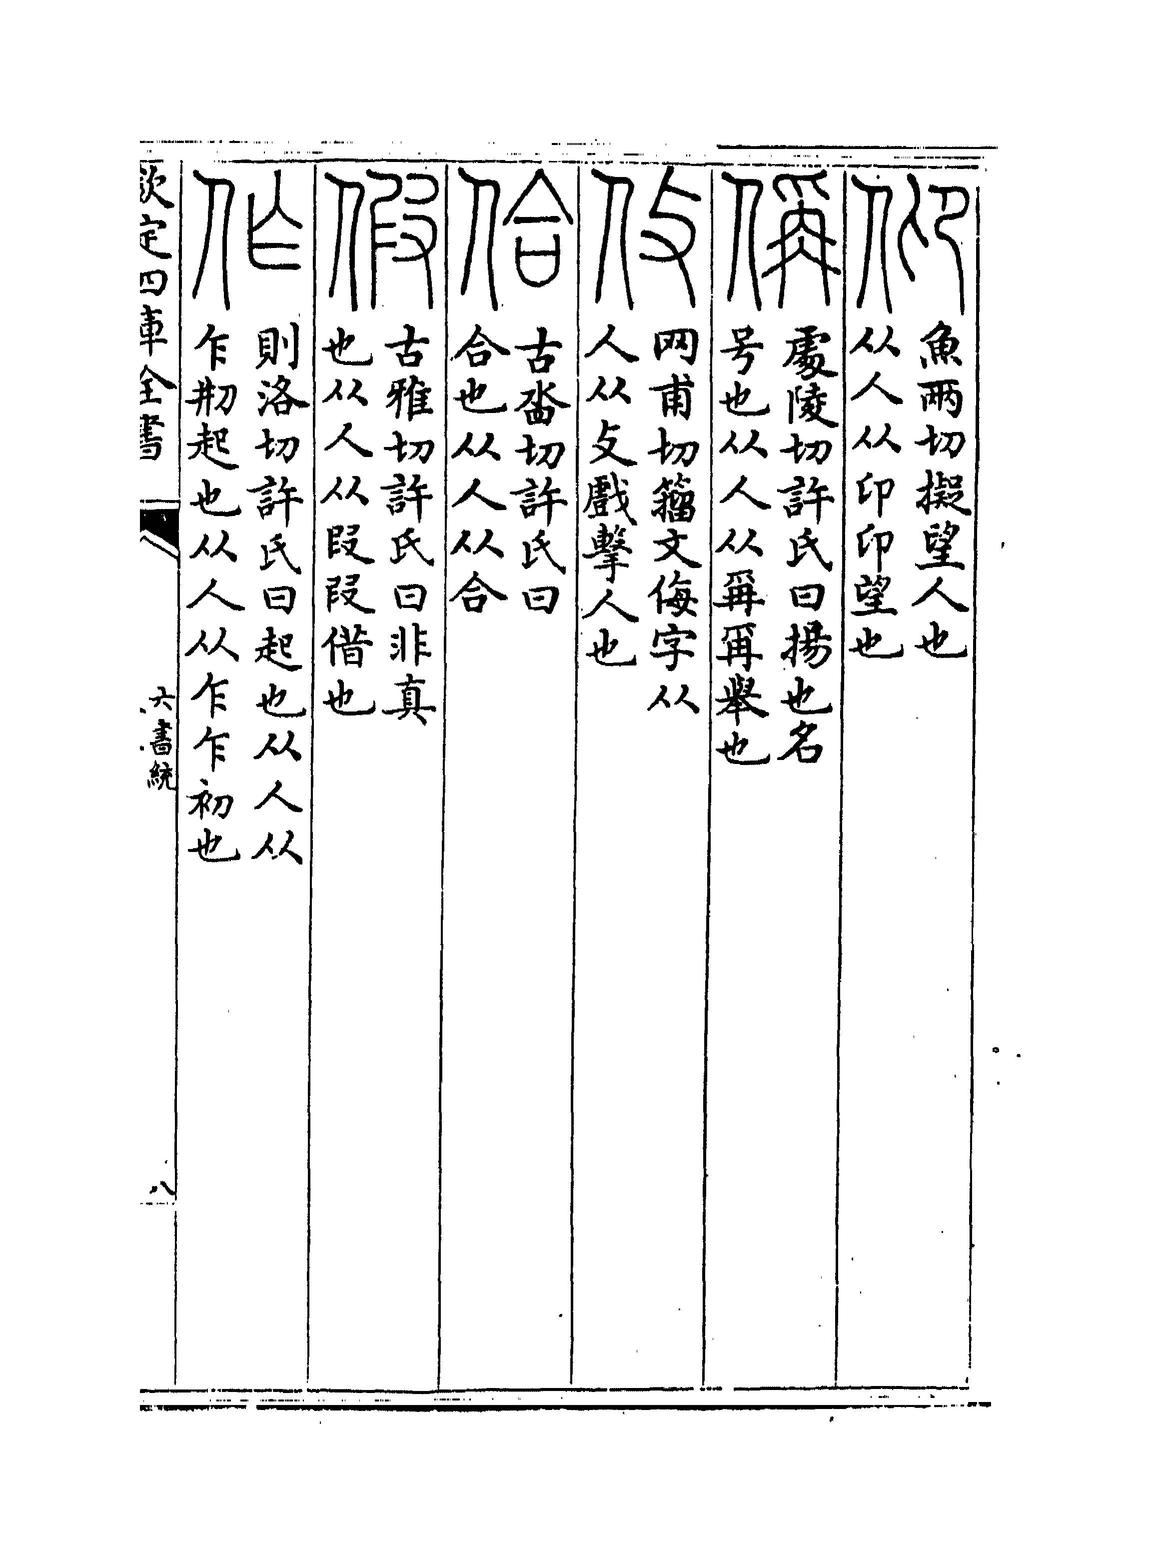 仰
魚兩切擬望人也
从人从印印望也
偁
處陵切許氏曰揚也名
号也从人从爯爯舉也
网甫切籕文侮字从
人从攴戲擊人也
佮
古沓切許氏曰
合也从人从合
假
古雅切許氏曰非真
也从人从叚叚偕也
作
則洛切許氏曰起也从人从
乍刱起也从人从乍乍初也
欽定四庫全書
六書統
八